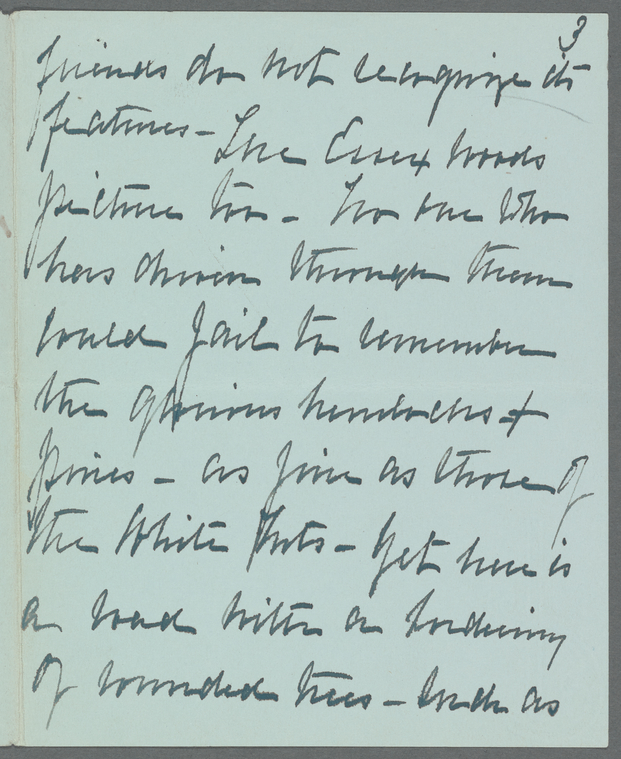 3
friends do not recognize its
features - The Essex woods
picture too - No one who
has driven through them
could fail to remember
the glorious hemlocks +
pines - as fine as those of
the White Mts - Yet here is
a road with a bordering
of rounded trees - such as